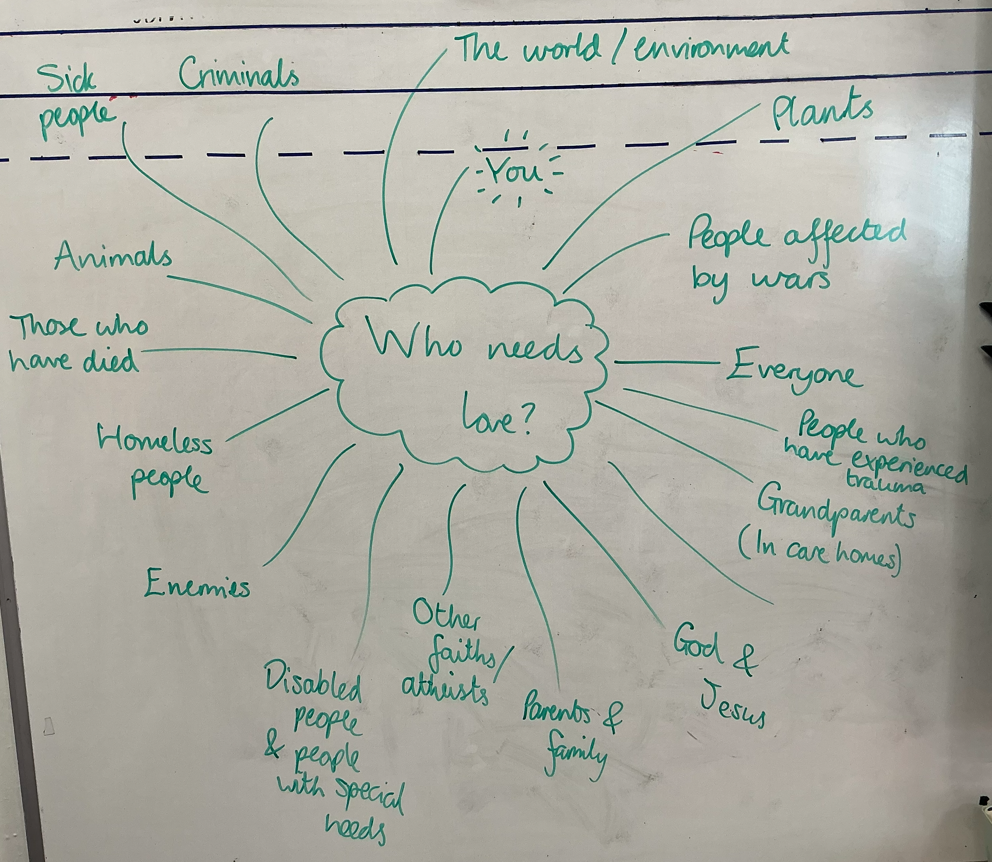 Who needs
love?
The world / environment
You
Plants
People affected
by wars
Everyone
People who
have experienced
trauma
Grandparents
(In care homes)
God &
Jesus
Parents &
family
Other
faiths/
atheists
Disabled
people
& people
with special
needs
Enemies
Homeless
people
Those who
have died
Animals
Sick
people
Criminals